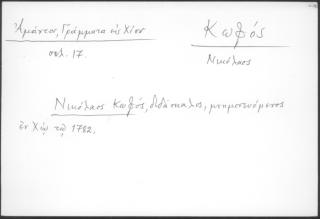 Ἀμάντου, Γράμματα εἰς Χίον
σελ. 17.
Κωφός
Νικόλαος
Νικόλαος Κωφός, διδάσκαλος, μνημονευόμενος
ἐν Χίῳ τῷ 1782.